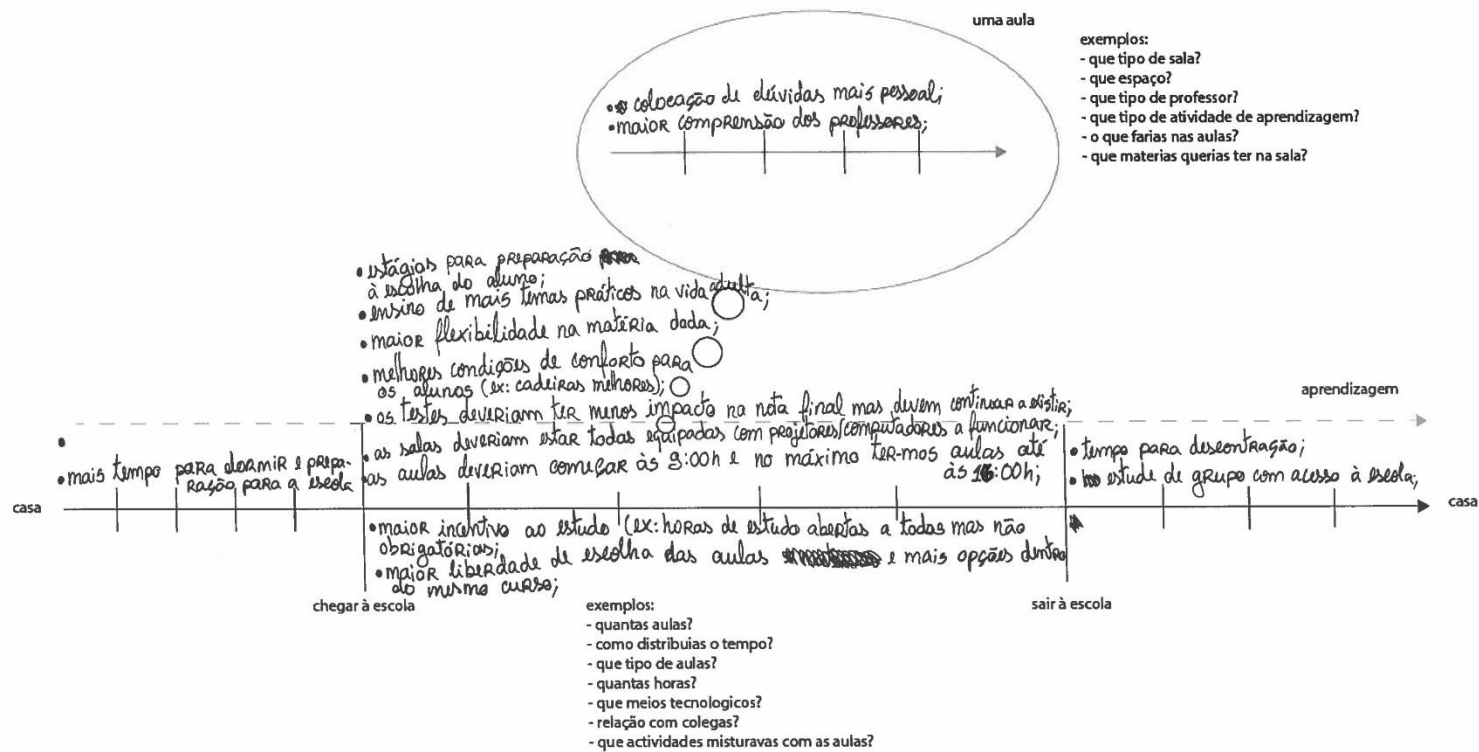 uma aula
exemplos:
- que tipo de sala?
- que espaço?
- que tipo de professor?
- que tipo de atividade de aprendizagem?
- o que farias nas aulas?
- que materias querias ter na sala?
• colocação de dúvidas mais pessoal;
• maior comprensão dos professores;
• estágios para preparação
à escolha do aluno;
• ensino de mais temas práticos na vida adulta;
• maior flexibilidade na matéria dada;
• melhores condições de conforto para
os alunos (ex: cadeiras melhores);
• os testes deveriam ter menos impacto na nota final mas devem continuar a existir;
aprendizagem
• as salas deveriam estar todas equipadas com projetores/computadores a funcionar;
• as aulas deveriam começar às 9:00h e no máximo ter-mos aulas até
às 16:00h;
• mais tempo para dormir e prepa-
ração para a escola
• tempo para descontração;
• estude de grupo com acesso à escola;
casa
casa
• maior incentivo ao estudo (ex: horas de estudo abertas a todas mas não
obrigatórias;
• maior liberdade de escolha das aulas e mais opções dentro
do mesmo curso;
chegar à escola
sair à escola
exemplos:
- quantas aulas?
- como distribuias o tempo?
- que tipo de aulas?
- quantas horas?
- que meios tecnologicos?
- relação com colegas?
- que actividades misturavas com as aulas?